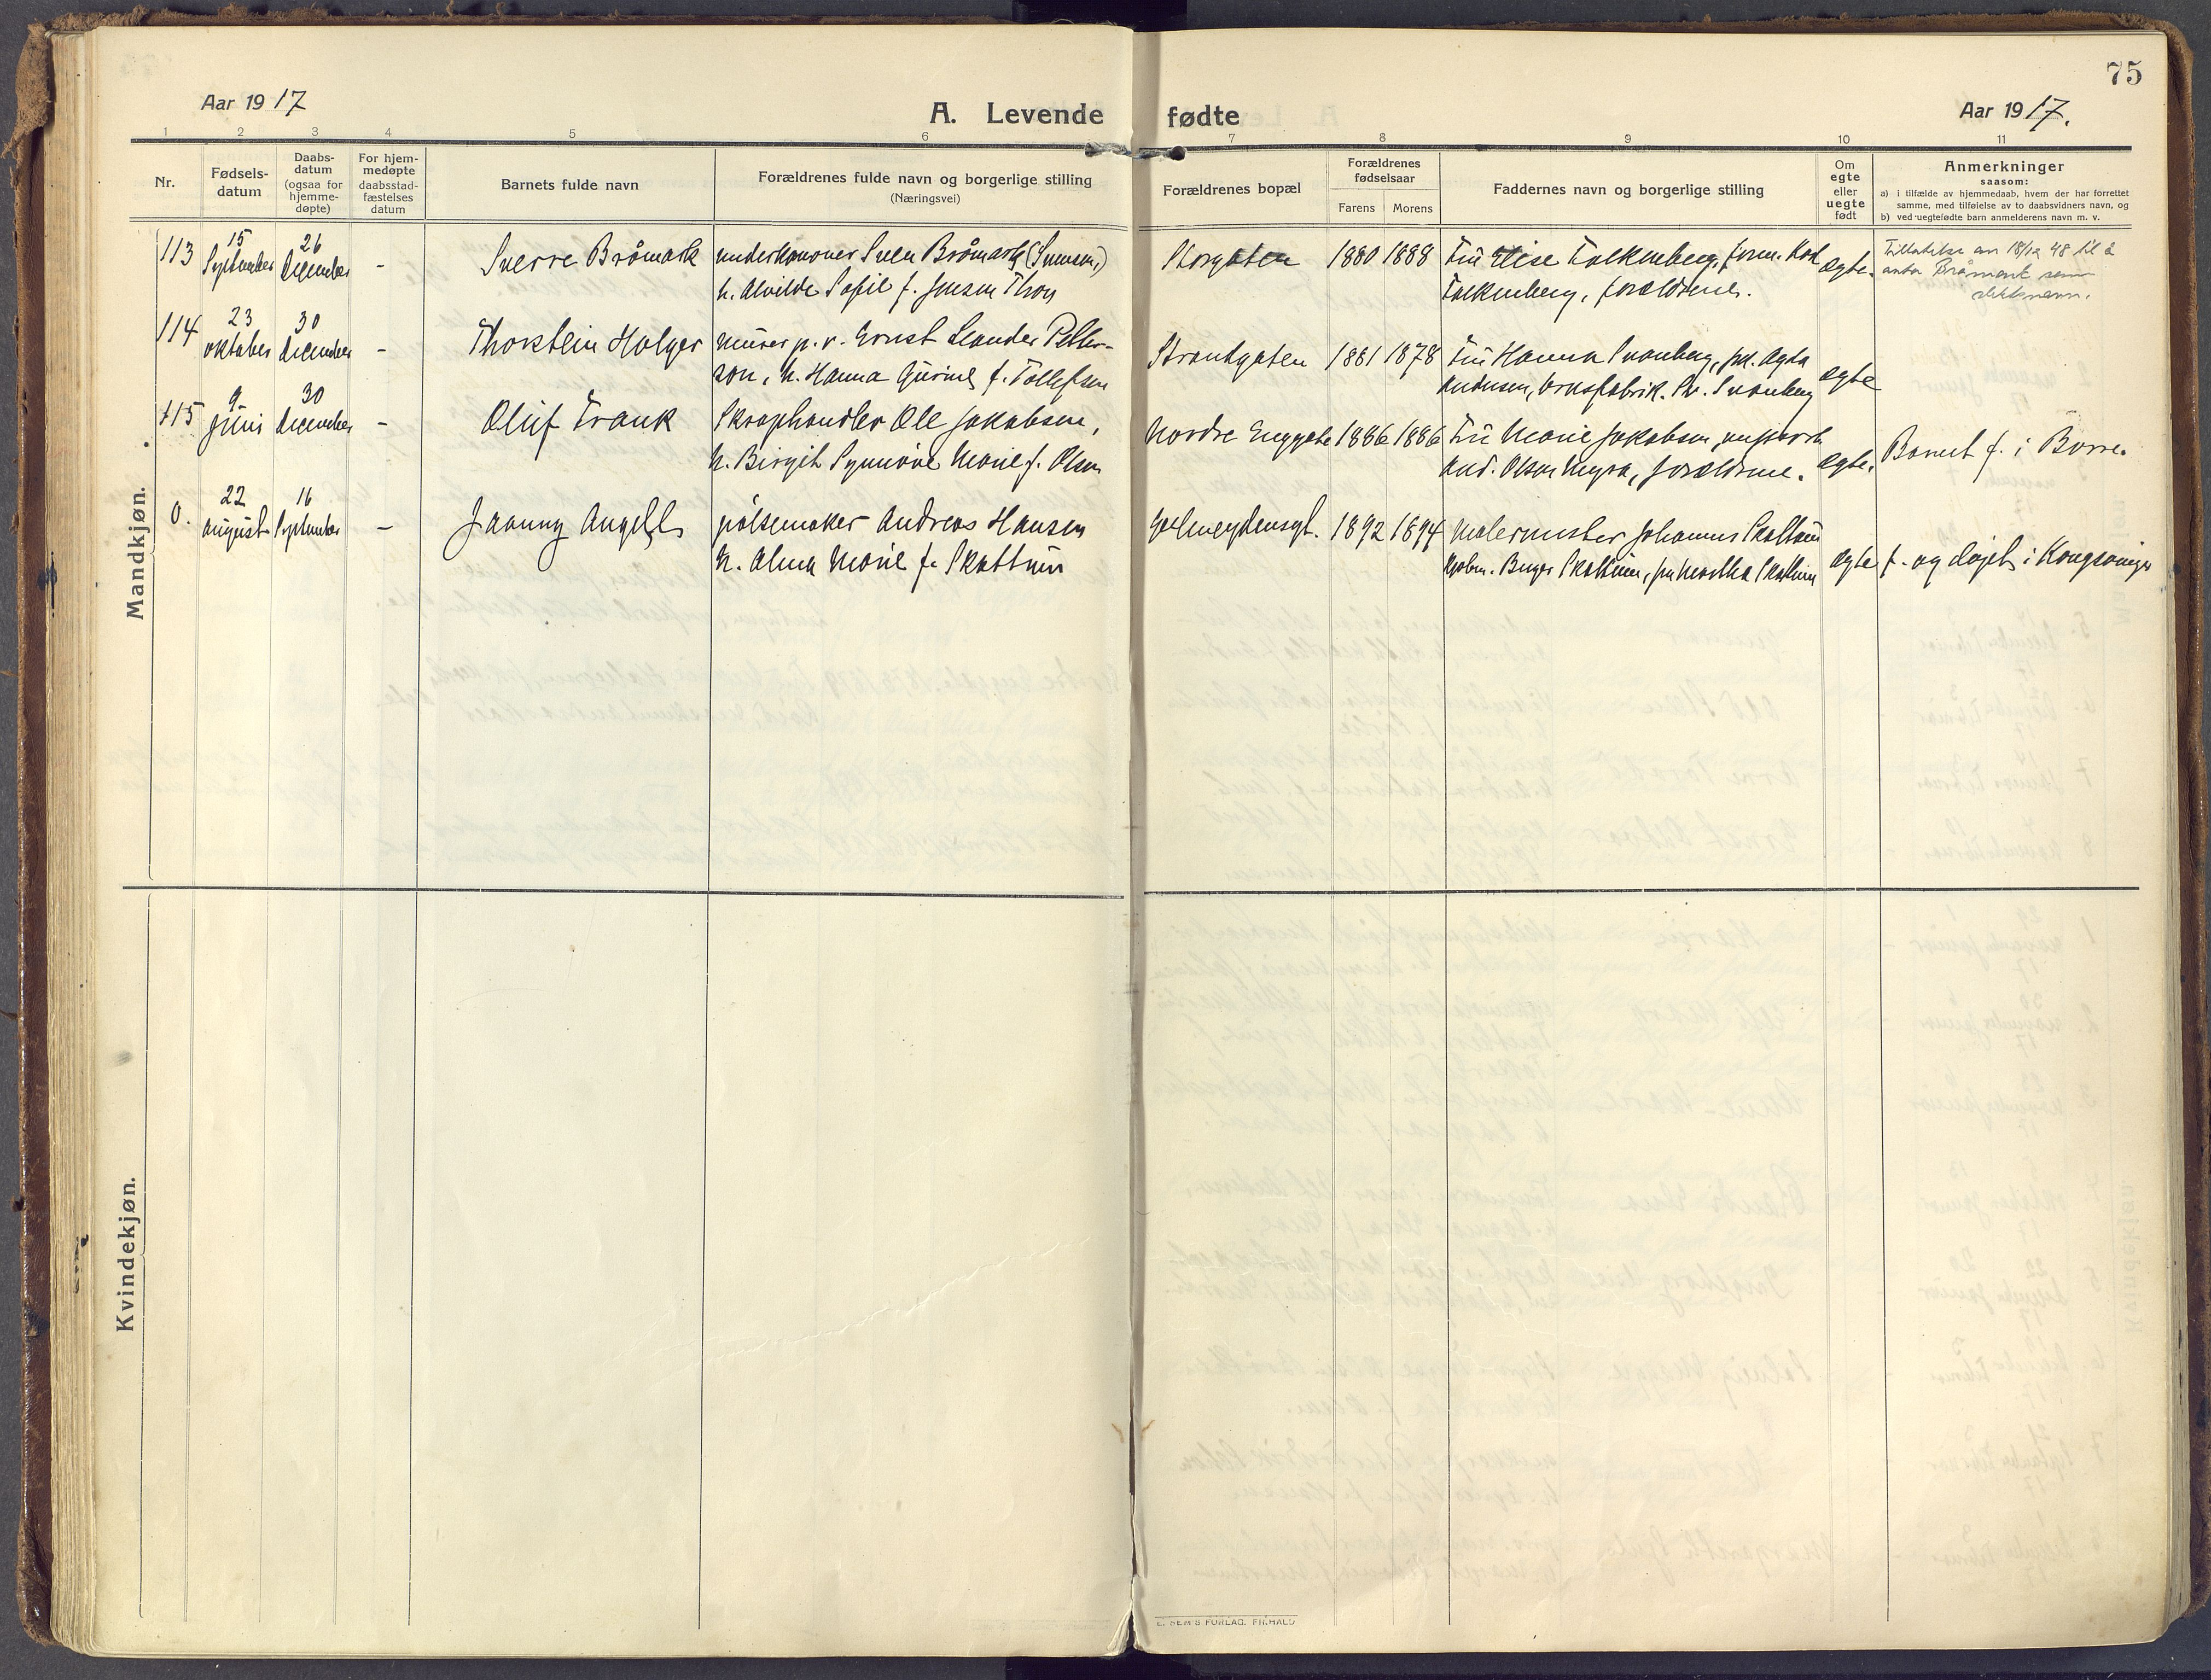 75
Aar 1917
A. Levende fødte
Aar 1917.
1 2 3 4 5 6 7 8 9 10 11
Nr.
Fødsels-
datum
Daabs-
datum
(ogsaa for
hjemme-
døpte)
For hjem-
medøpte
daabsstad-
fæstelses
datum
Barnets fulde navn
Forældrenes fulde navn og borgerlige stilling
(Næringsvei)
Forældrenes bopæl
Forældrenes
fødselsaar
Farens Morens
Faddernes navn og borgerlige stilling
Om
egte
eller
uegte
født
Anmerkninger
saasom:
a) i tilfælde av hjemmedaab, hvem der har forrettet
samme, med tilføielse av to daabsvidners navn, og
b) ved uegtefødte barn anmelderens navn m. v.
Mandkjøn.
113
15 September
26 December
-
Sverre Bråmark
underkanoner Sven Bråmark (Svenson)
h. Alvilde Sofie f. Jensen Thon
Storgaten
1880 1888
Frú Elise Falkenberg, form.
Falkenberg, forældrene.
egte.
Tillatelse av 18/12 48 til å
anta Bråmark som
slektsnavn.
114
23 oktober
30 december
-
Thorstein Holger
murer p. v. Ernst Leander Petter-
son, h. Hanna Gurine f. Tollefsen
Strandgaten
1881 1878
Frú Hanna Svanberg, frk. Agda
Andersen, Svanberg
egte
115
9. juni
30 december
-
Oluf Frank
Skraphandler Ole Jakobsen,
h. Birgit Synnöve Marie f. Olsen
Nordre Enggate
1886 1886
Frú Marie Jakobsen,
And. Olsen Myra, forældrene.
egte.
Barnet f. i Borre.
0.
22 august
16 September
-
Jaanny Angell
pølsemaker Andreas Hansen
h. Alma Marie f. Skattum
1892 1894
Malermester Johannes Skattum
Birger Skattum, fru Martha Skattum
egte
f. og døpt i Kongsvinger
Kvindekjøn.
E. SEM'S FORLAG. FR.HALD